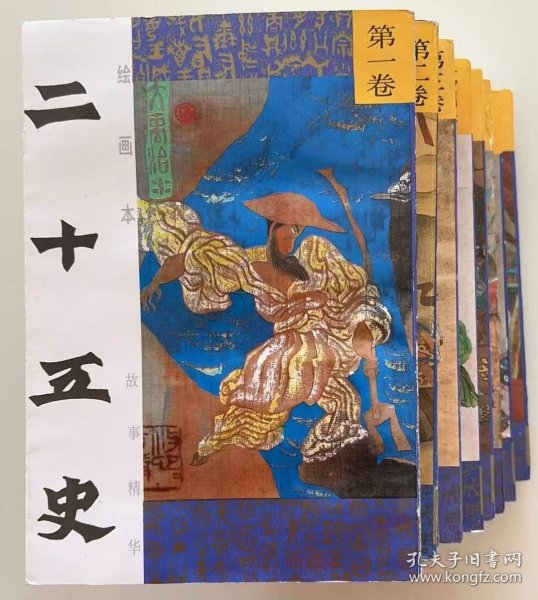 二十五史
绘画本
故事精华
大禹治水
第一卷
第二卷
第三卷
孔夫子旧书网
www.kongfz.com